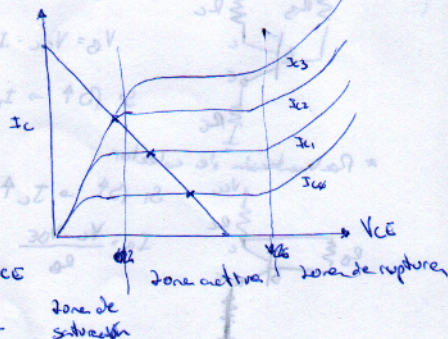 Ic3
Ic2
Ic
Ic1
VCE
CE
zona activa
zona de ruptura
zona de
saturación